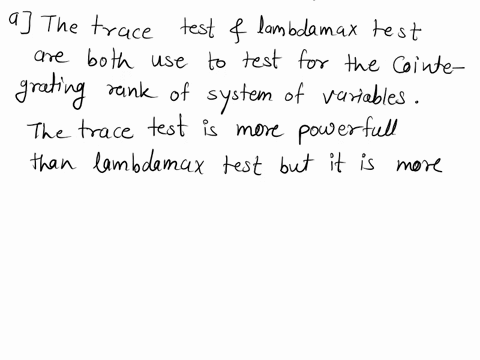 a] The trace test & lambdamax test
are both use to test for the Cointe-
grating rank of system of variables.
The trace test is more powerfull
than lambdamax test but it is more